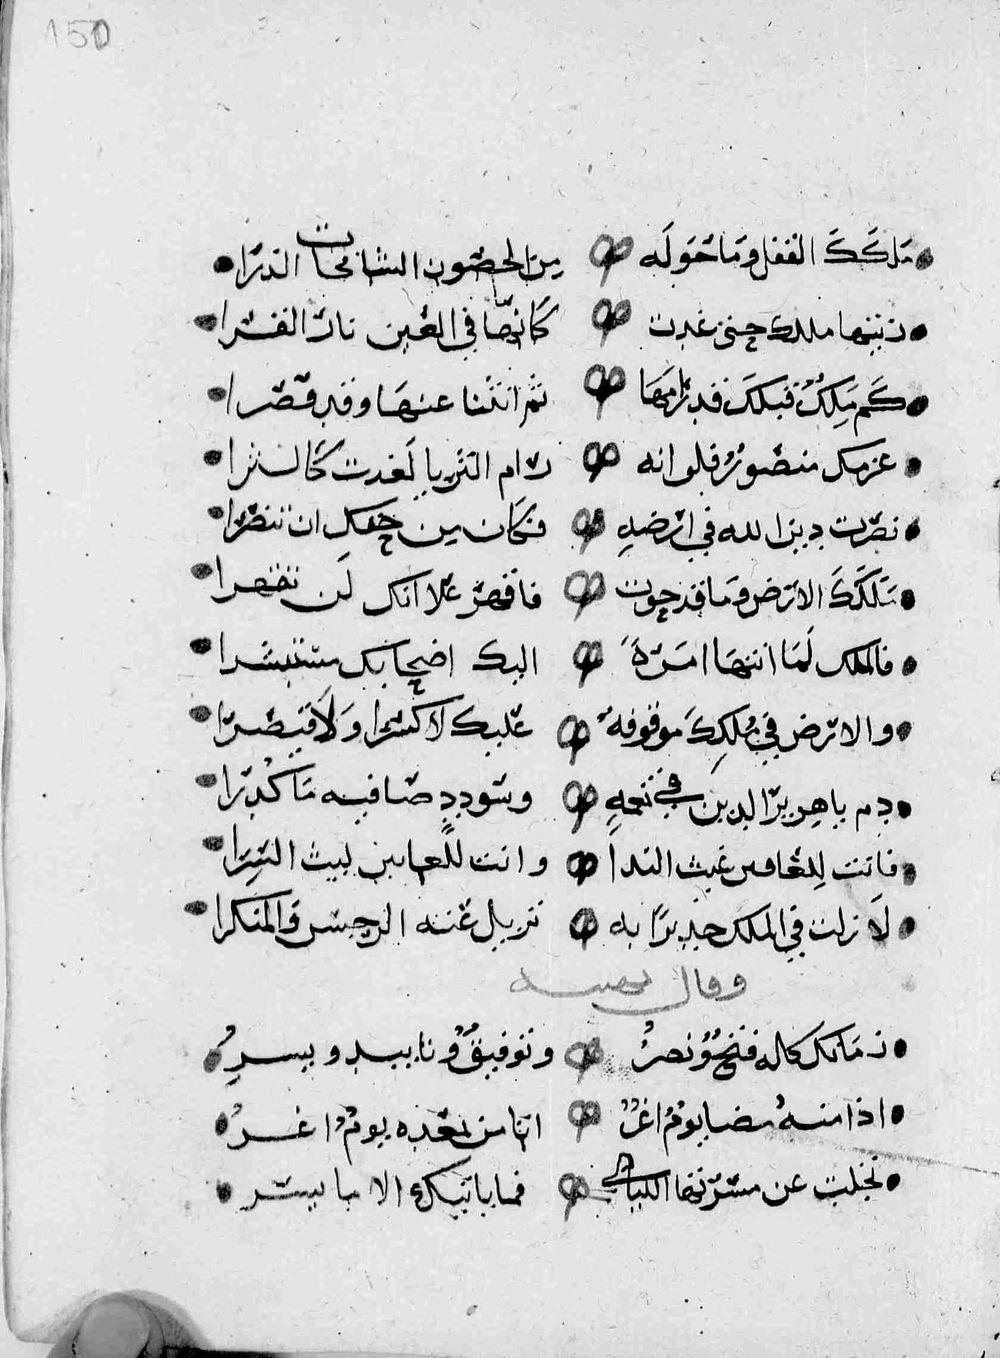 150
ملكك القفل وما حوله من الحصون الشامخات الذرا
زينتها ملكك حتى غدت كأنها في العين نار القرا
كم ملك قبلك قد رامها ثم انثنا عنها وقد قصرا
عزمك منصور فلو انه رام الثريا لغدت كالثرا
نصرت دين الله في ارضه فكان من حقك ان تنصرا
تملك الارض وما قد حوت فاقهر علا انك لن تقهرا
فالملك لما انتها امره اليك اضحا بك مستبشرا
والارض في ملكك موقوفة عليك لا كسرا ولا قيصرا
دم يا هزبر الدين في نعمه وسودد صافيه ما كدرا
فانت للعافين غيث الندا وانت للعانين ليث الشرا
لا زلت في الملك جديرا به تزيل عنه الرجس والمنكرا
وقال يمدحه
زمانك كله فتح ونصر وتوفيق وتاييد ويسر
اذا منه مضا يوم اغر اتا من بعده يوم اغر
تجلت عن مسرتها الليالي فما ياتيك الا ما يسر